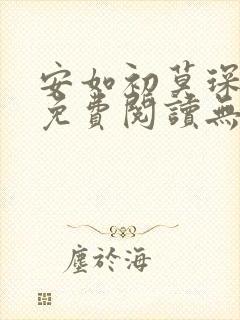 安如初莫琛
免費閱讀無
塵於海